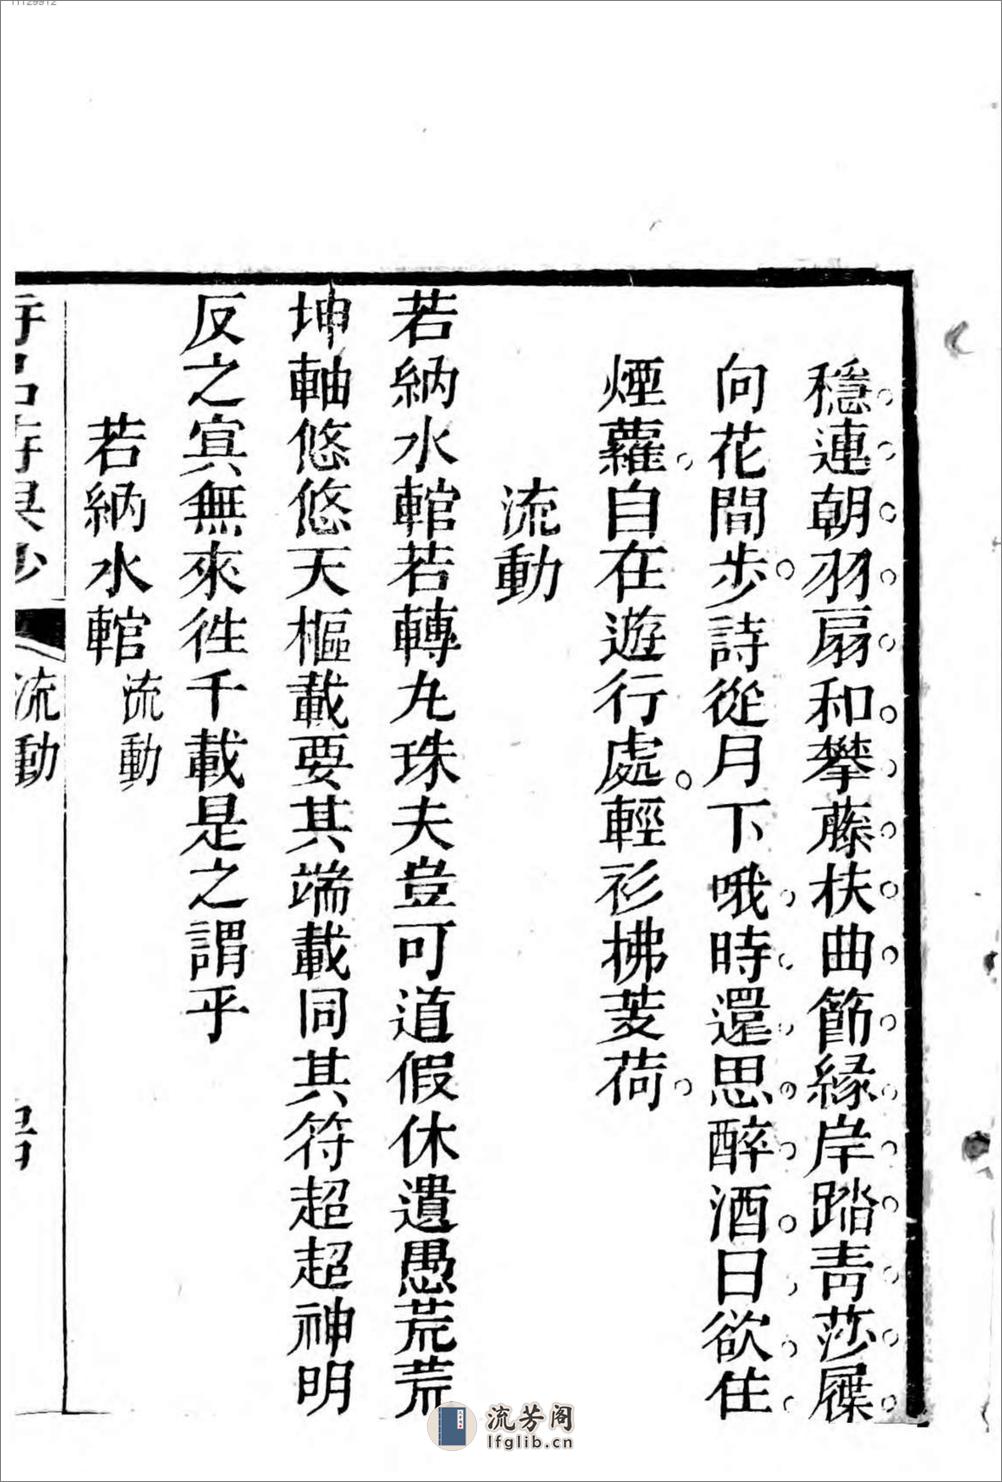 穩連朝羽扇和攀藤扶曲節緣岸踏青莎屧
向花間步詩從月下哦時還思醉酒日欲住
煙蘿自在遊行處輕衫拂芰荷
流動
若納水輨若轉丸珠夫豈可道假休遺愚荒荒
坤軸悠悠天樞載要其端載同其符超超神明
反之寞無來徃千載是之謂乎
若納水輨流動
流動
流芳阁
lfglib.cn